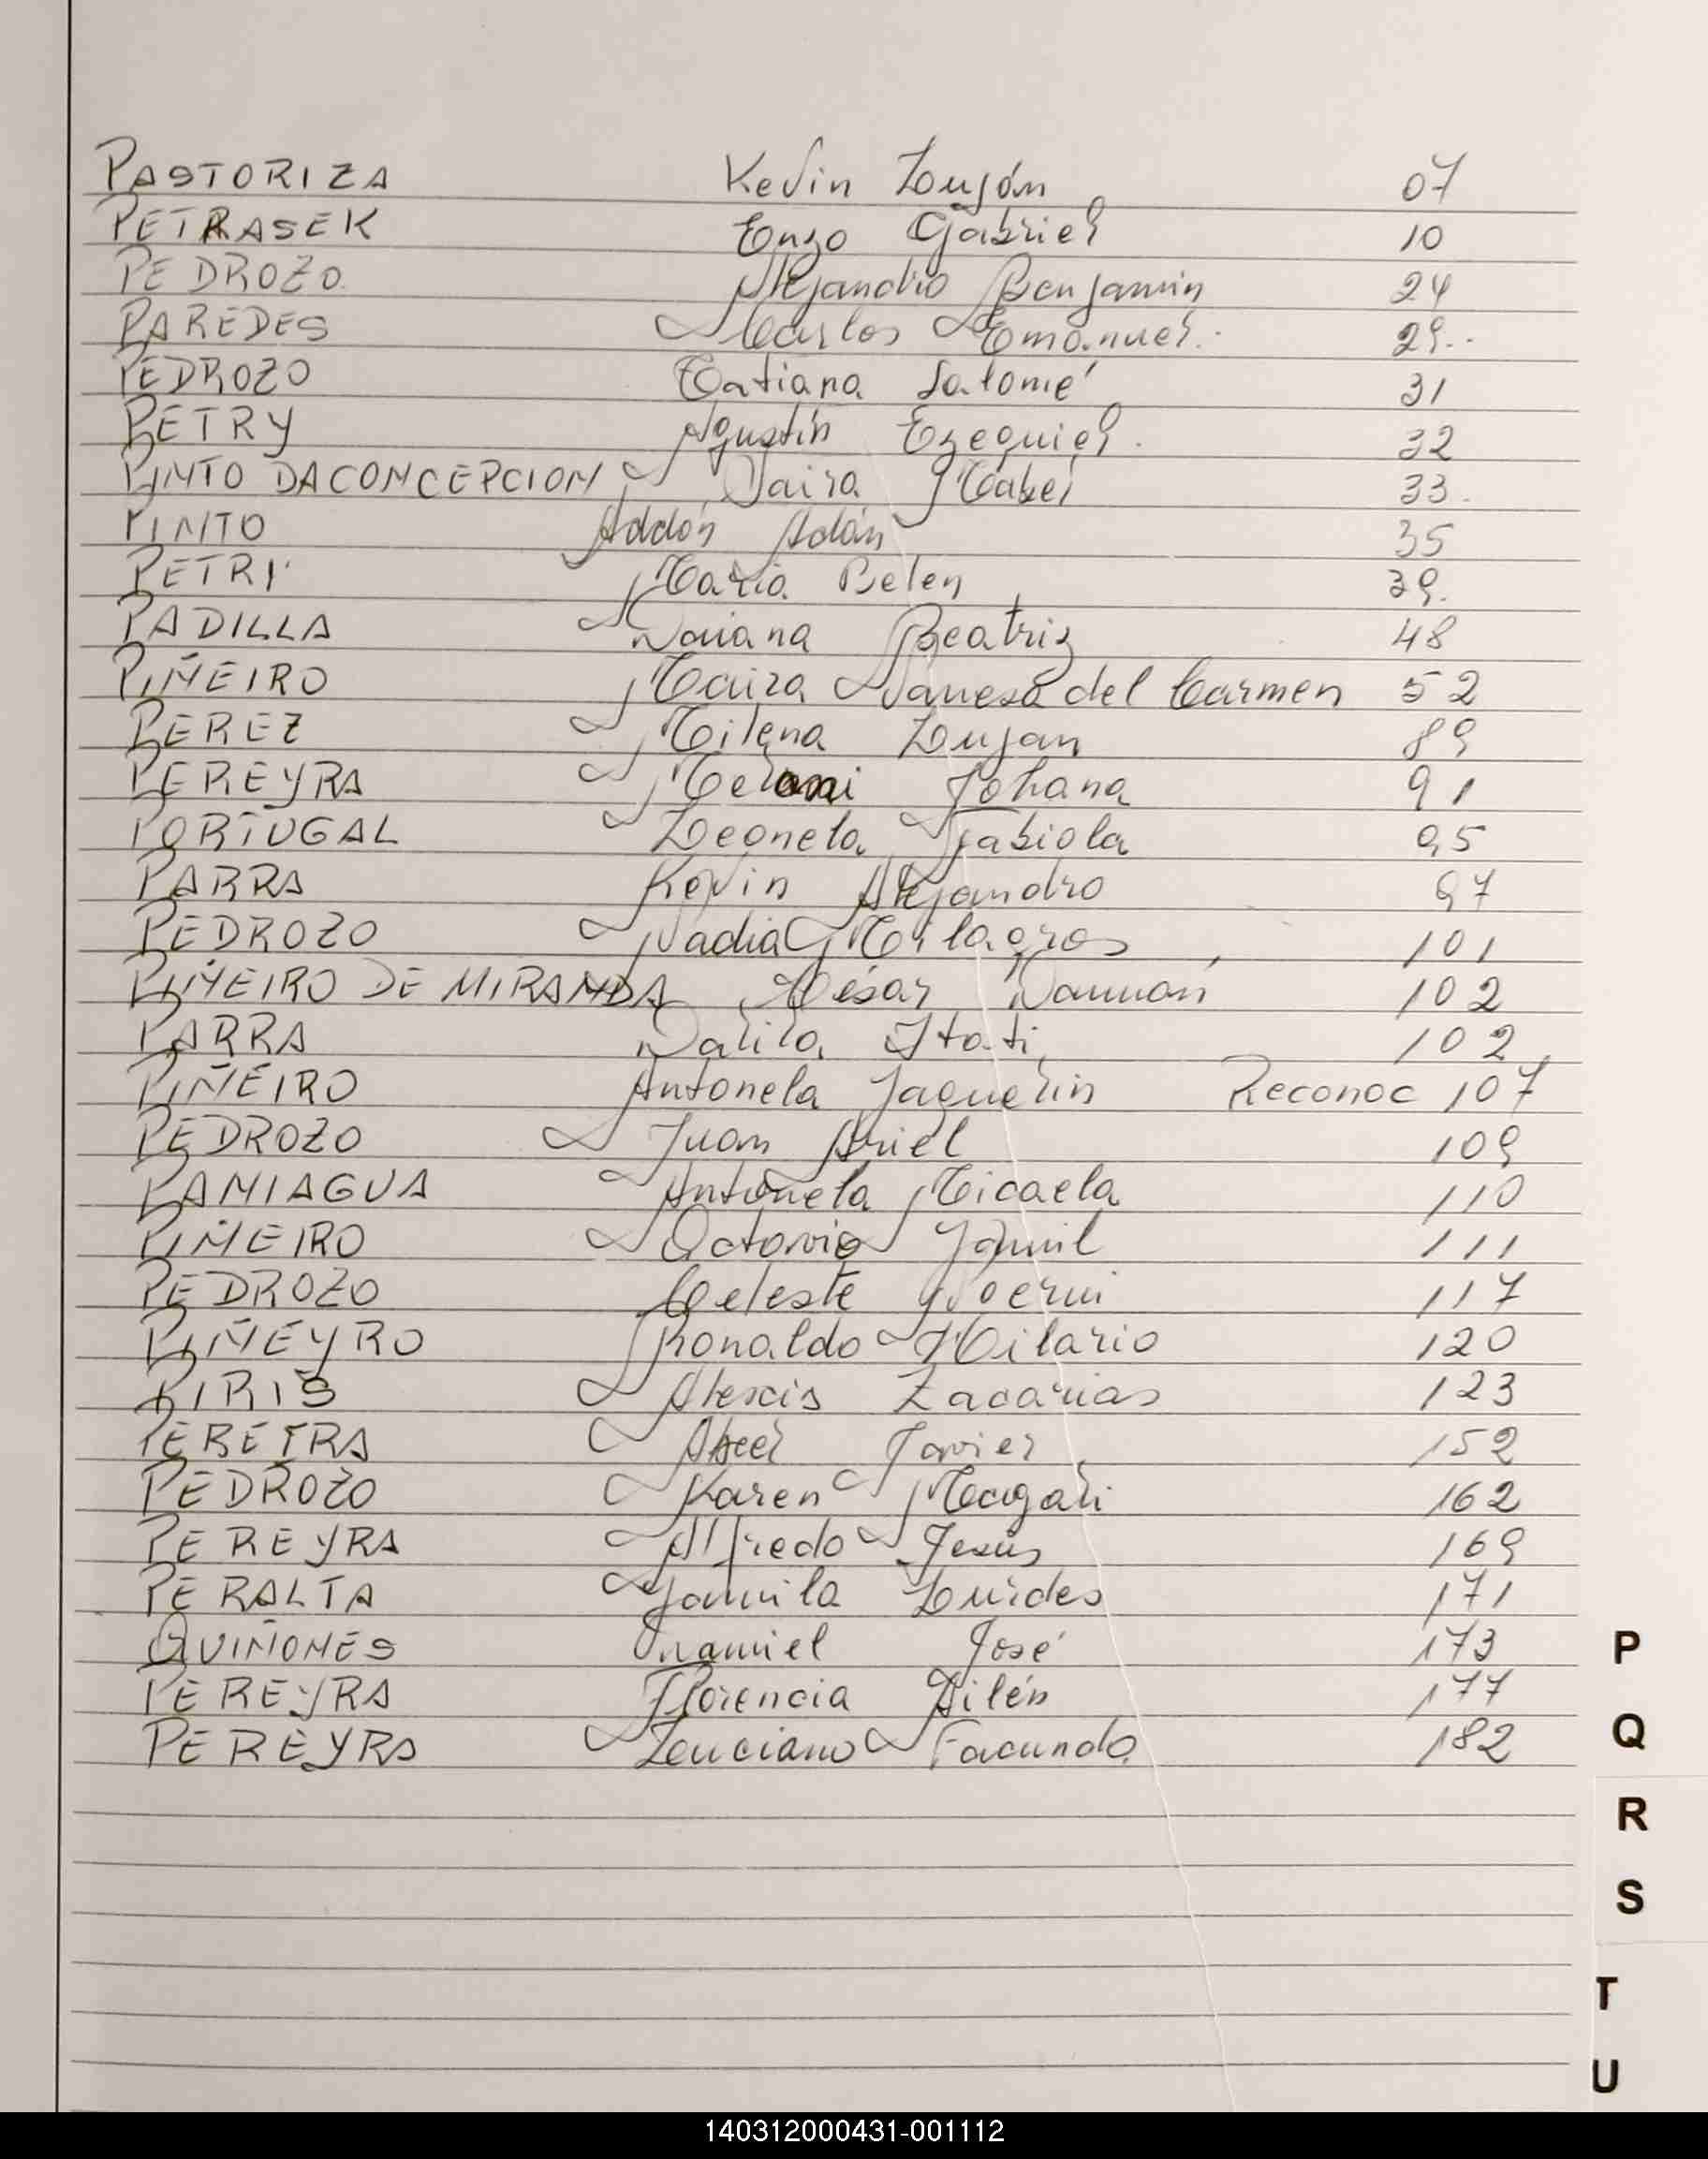 PASTORIZA Kevin Luján 07
PETRASEK Enzo Gabriel 10
PEDROZO Alejandro Benjamin 24
PAREDES Carlos Emanuel 29
PEDROZO Tatiana Salomé 31
PETRY Agustín Ezequiel 32
PINTO DACONCEPCION Naira Mabel 33
PINTO Addón Adán 35
PETRI María Belen 39
PADILLA Daiana Beatriz 48
PIÑEIRO Maira Vanesa del Carmen 52
PEREZ Milena Lujan 89
PEREYRA Melani Johana 91
PORTUGAL Leonela Fabiola 95
PARRA Kevin Alejandro 97
PEDROZO Nadia Milagros 101
PIÑEIRO DE MIRANDA César Damián 102
PARRA Dalila Itati 102
PIÑEIRO Antonela Jaquelin Reconoc 107
PEDROZO Juan Ariel 109
PANIAGUA Antonela Micaela 110
PIÑEIRO Octavio Yamil 111
PEDROZO Celeste Noemi 117
PIÑEYRO Ronaldo Hilario 120
PIRIS Alexis Zacarias 123
PEREIRA Abeel Javier 152
PEDROZO Karen Magali 162
PEREYRA Alfredo Jesús 169
PERALTA Yamila Lurdes 171
QUIÑONES José 173
PEREYRA Florencia Ailén 177
PEREYRA Luciano Facundo 182
P
Q
R
S
T
U
140312000431-001112